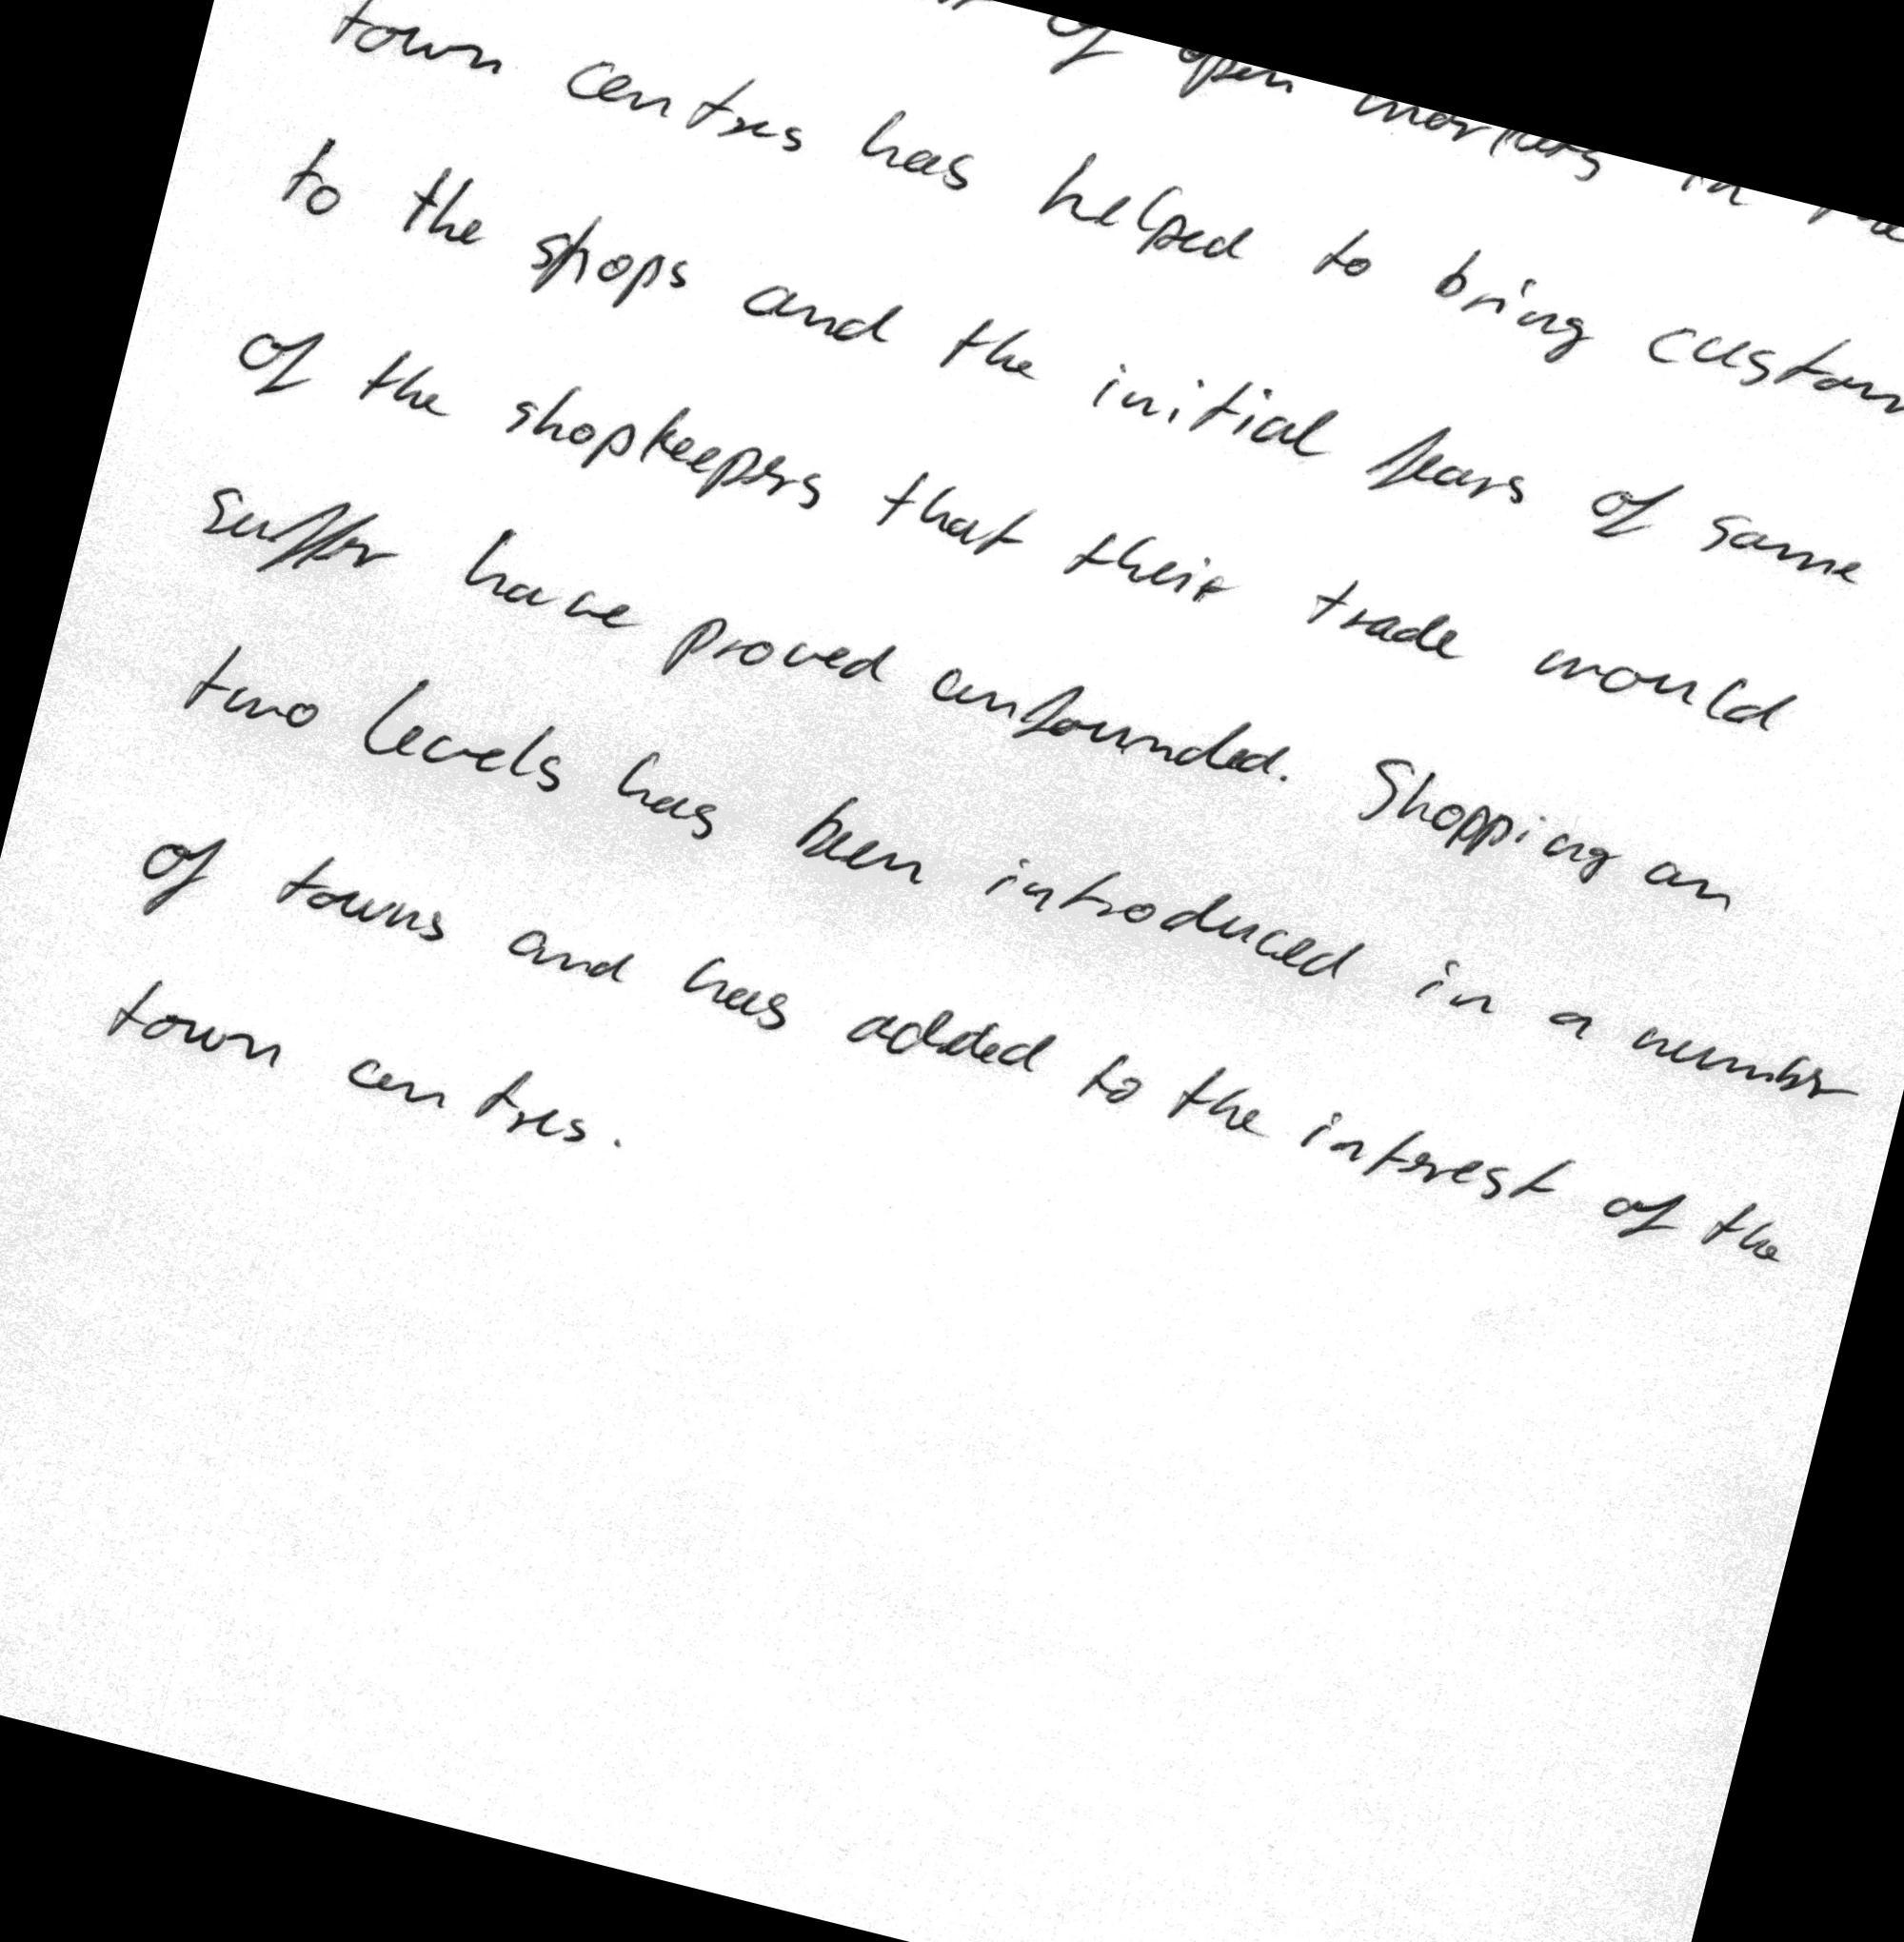 of open markets in the
town centres has helped to bring custom
to the shops and the initial fears of some
of the shopkeepers that their trade would
suffer have proved unfounded. Shopping on
two levels has been introduced in a number
of towns and has added to the interest of the
town centres.